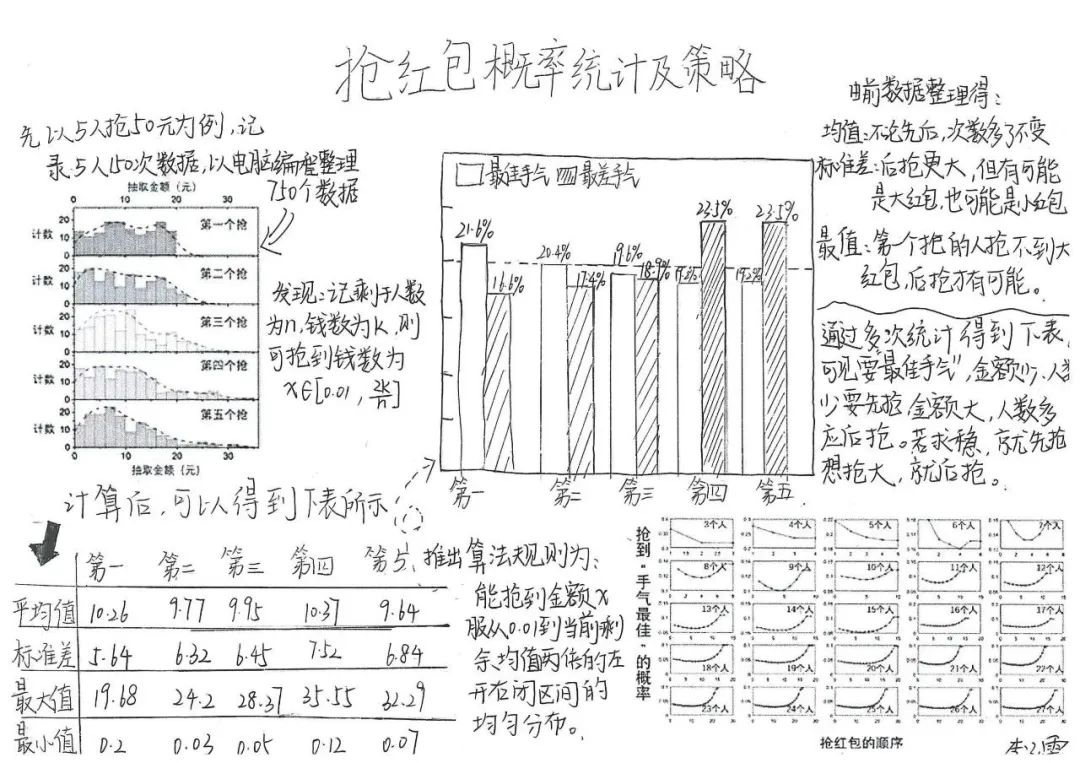 抢红包概率统计及策略
先以5人抢50元为例,记
录5人150次数据,以电脑编程整理
750个数据
抽取金额 (元)
0 10 20 30
计数
第一个抢
第二个抢
计数
第三个抢
第四个抢
计数
第五个抢
0 10 20 30
抽取金额 (元)
发现:记剩于人数
为n,钱数为k,则
可抢到钱数为
x∈[0.01, 2k/n]
最佳手气 最差手气
21.6% 16.6% 20.4% 17.4% 19.6% 18.9% 23.5% 23.5%
第一 第二 第三 第四 第五
由前数据整理得:
均值:不论先后,次数多了不变
标准差:后抢更大,但有可能
是大红包,也可能是小红包
最值:第一个抢的人抢不到大
红包,后抢才有可能。
通过多次统计得到下表,
可见要"最佳手气",金额少、人数
少要先抢,金额大,人数多
应后抢。若求稳,就先抢
想抢大,就后抢。
计算后,可以得到下表所示
第一 第二 第三 第四 第五
平均值 10.26 9.77 9.95 10.37 9.64
标准差 5.64 6.32 6.45 7.52 6.84
最大值 19.68 24.2 28.37 35.55 32.29
最小值 0.2 0.03 0.05 0.12 0.07
推出算法规则为:
能抢到金额x
服从0.01到当前剩
余均值两倍的左
开右闭区间的
均匀分布。
抢到"手气最佳"的概率
3个人 4个人 5个人 6个人 7个人
8个人 9个人 10个人 11个人 12个人
13个人 14个人 15个人 16个人 17个人
18个人 19个人 20个人 21个人 22个人
23个人 24个人 25个人 26个人 27个人
抢红包的顺序